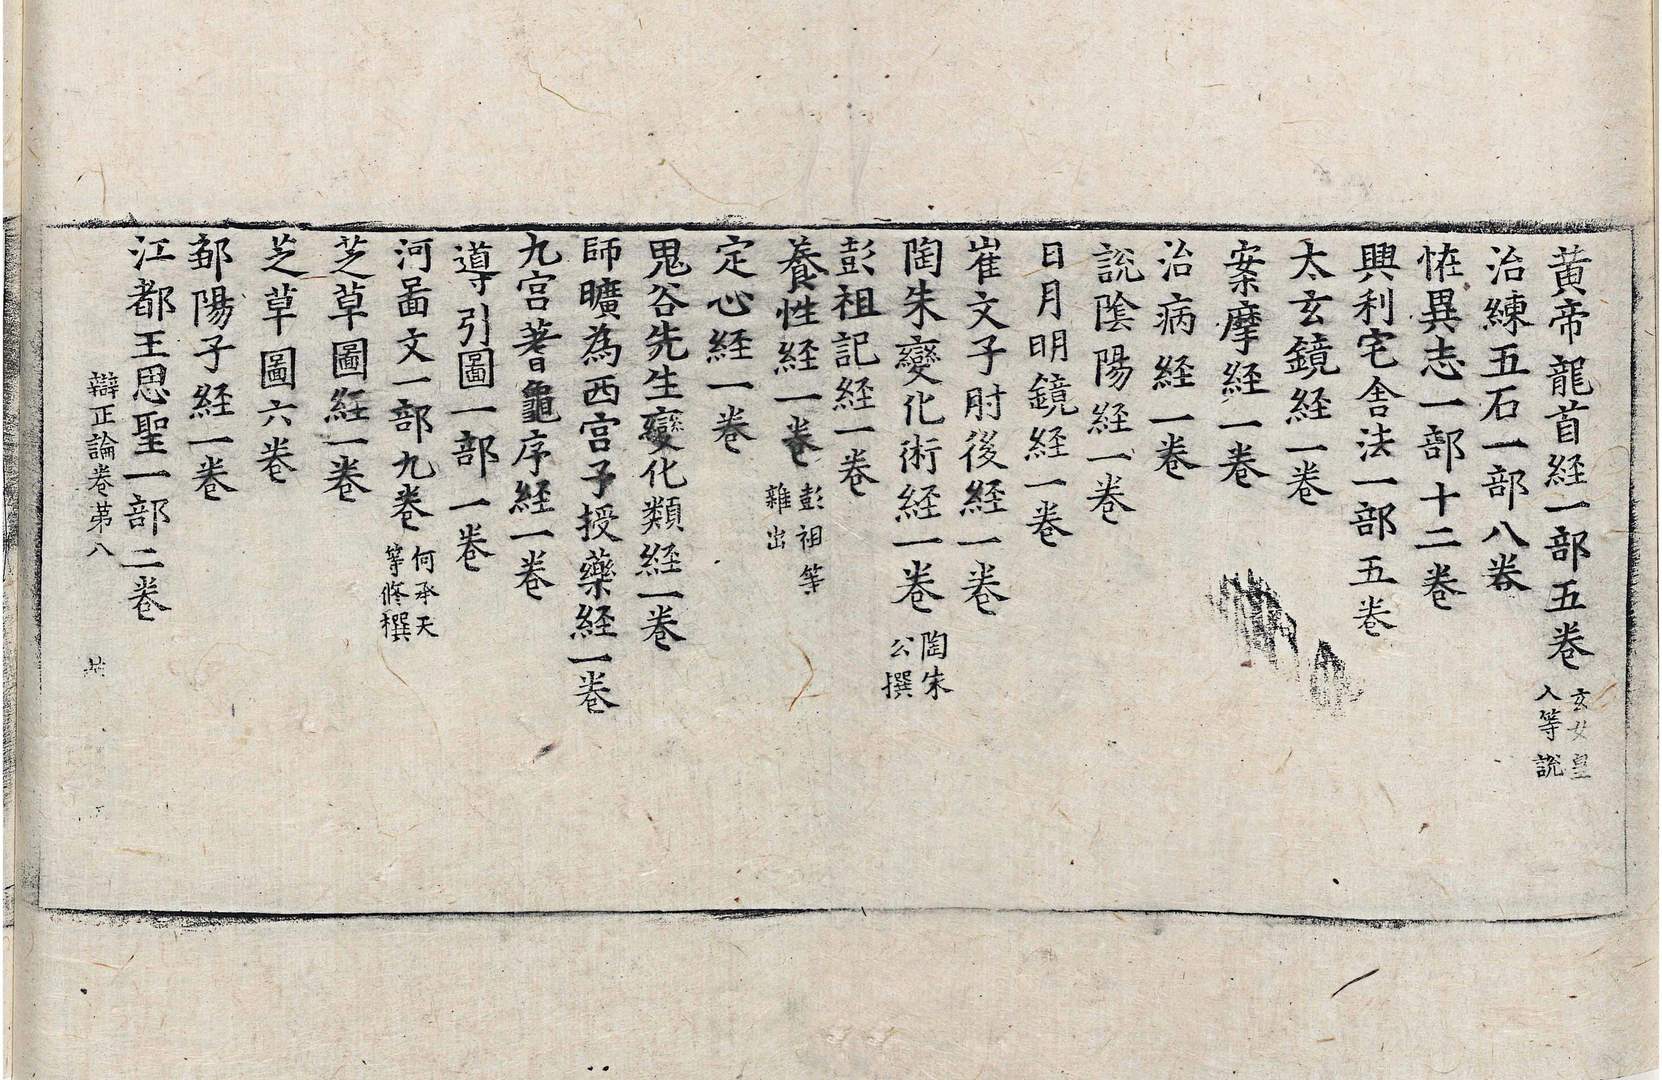 黄帝龍首経一部五卷 玄女皇人等説
治練五石一部八卷
恠異志一部十二卷
興利宅舎法一部五卷
太玄鏡経一卷
案摩経一卷
治病経一卷
説陰陽経一卷
日月明鏡経一卷
崔文子肘後経一卷
陶朱變化術経一卷 陶朱公撰
彭祖記経一卷
養性経一卷 彭祖等雜出
定心経一卷
鬼谷先生變化類経一卷
師曠為西宮子授藥経一卷
九宮蓍龜序経一卷
導引圖一部一卷
河啚文一部九卷 何承天等修撰
芝草圖経一卷
芝草圖六卷
郅陽子経一卷
江都王思聖一部二卷
辯正論卷第八